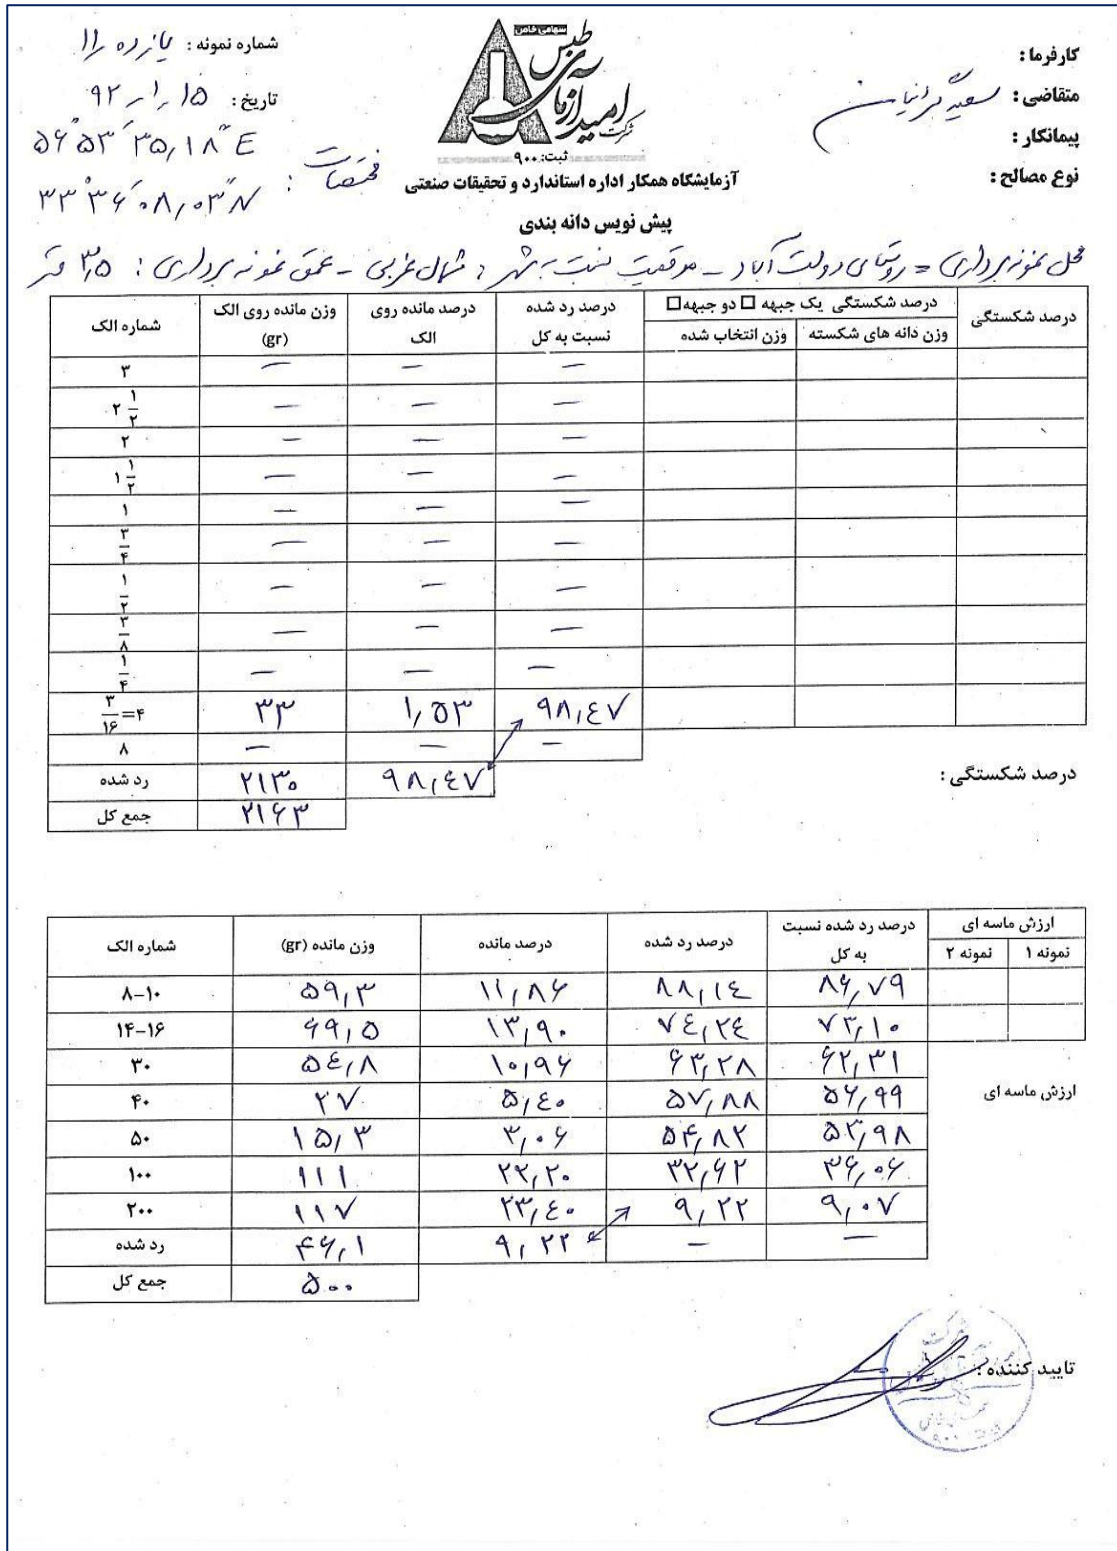 کارفرما :
متقاضی : سعید گرانیان
پیمانکار :
نوع مصالح :
سهامی خاص
شرکت امید آزمای طبس
ثبت: ۹۰۰
آزمایشگاه همکار اداره استاندارد و تحقیقات صنعتی
پیش نویس دانه بندی
شماره نمونه : یازده ۱۱
تاریخ : ۹۲/۱/۱۵
مختصات : ۵۶° ۵۳' ۳۵,۱۸" E
۳۳° ۳۶' ۰۸,۰۳" N
محل نمونه برداری = روستای دولت آباد - موقعیت نسبت به شهر : شمال غربی - عمق نمونه برداری : ۳,۵ متر
شماره الک | وزن مانده روی الک (gr) | درصد مانده روی الک | درصد رد شده نسبت به کل | درصد شکستگی یک جبهه □ دو جبهه□ | درصد شکستگی
وزن انتخاب شده | وزن دانه های شکسته
۳ | – | – | –
۲ ۱/۲ | – | – | –
۲ | – | – | –
۱ ۱/۲ | – | – | –
۱ | – | – | –
۳/۴ | – | – | –
۱/۲ | – | – | –
۳/۸ | – | – | –
۱/۴ | – | – | –
۳/۱۶=۴ | ۳۳ | ۱,۵۳ | ۹۸,۴۷
۸ | – | – | –
رد شده | ۲۱۳۰ | ۹۸,۴۷
جمع کل | ۲۱۶۳
درصد شکستگی :
شماره الک | وزن مانده (gr) | درصد مانده | درصد رد شده | درصد رد شده نسبت به کل | ارزش ماسه ای
نمونه ۲ | نمونه ۱
۸-۱۰ | ۵۹,۳ | ۱۱,۸۶ | ۸۸,۱۴ | ۸۶,۷۹
۱۴-۱۶ | ۶۹,۵ | ۱۳,۹۰ | ۷۴,۲۴ | ۷۳,۱۰
۳۰ | ۵۴,۸ | ۱۰,۹۶ | ۶۳,۲۸ | ۶۲,۳۱
۴۰ | ۲۷ | ۵,۴۰ | ۵۷,۸۸ | ۵۶,۹۹
ارزش ماسه ای
۵۰ | ۱۵,۳ | ۳,۰۶ | ۵۴,۸۲ | ۵۳,۹۸
۱۰۰ | ۱۱۱ | ۲۲,۲۰ | ۳۲,۶۲ | ۳۶,۰۶
۲۰۰ | ۱۱۷ | ۲۳,۴۰ | ۹,۲۲ | ۹,۰۷
رد شده | ۴۶,۱ | ۹,۲۲ | – | –
جمع کل | ۵۰۰
تایید کننده :